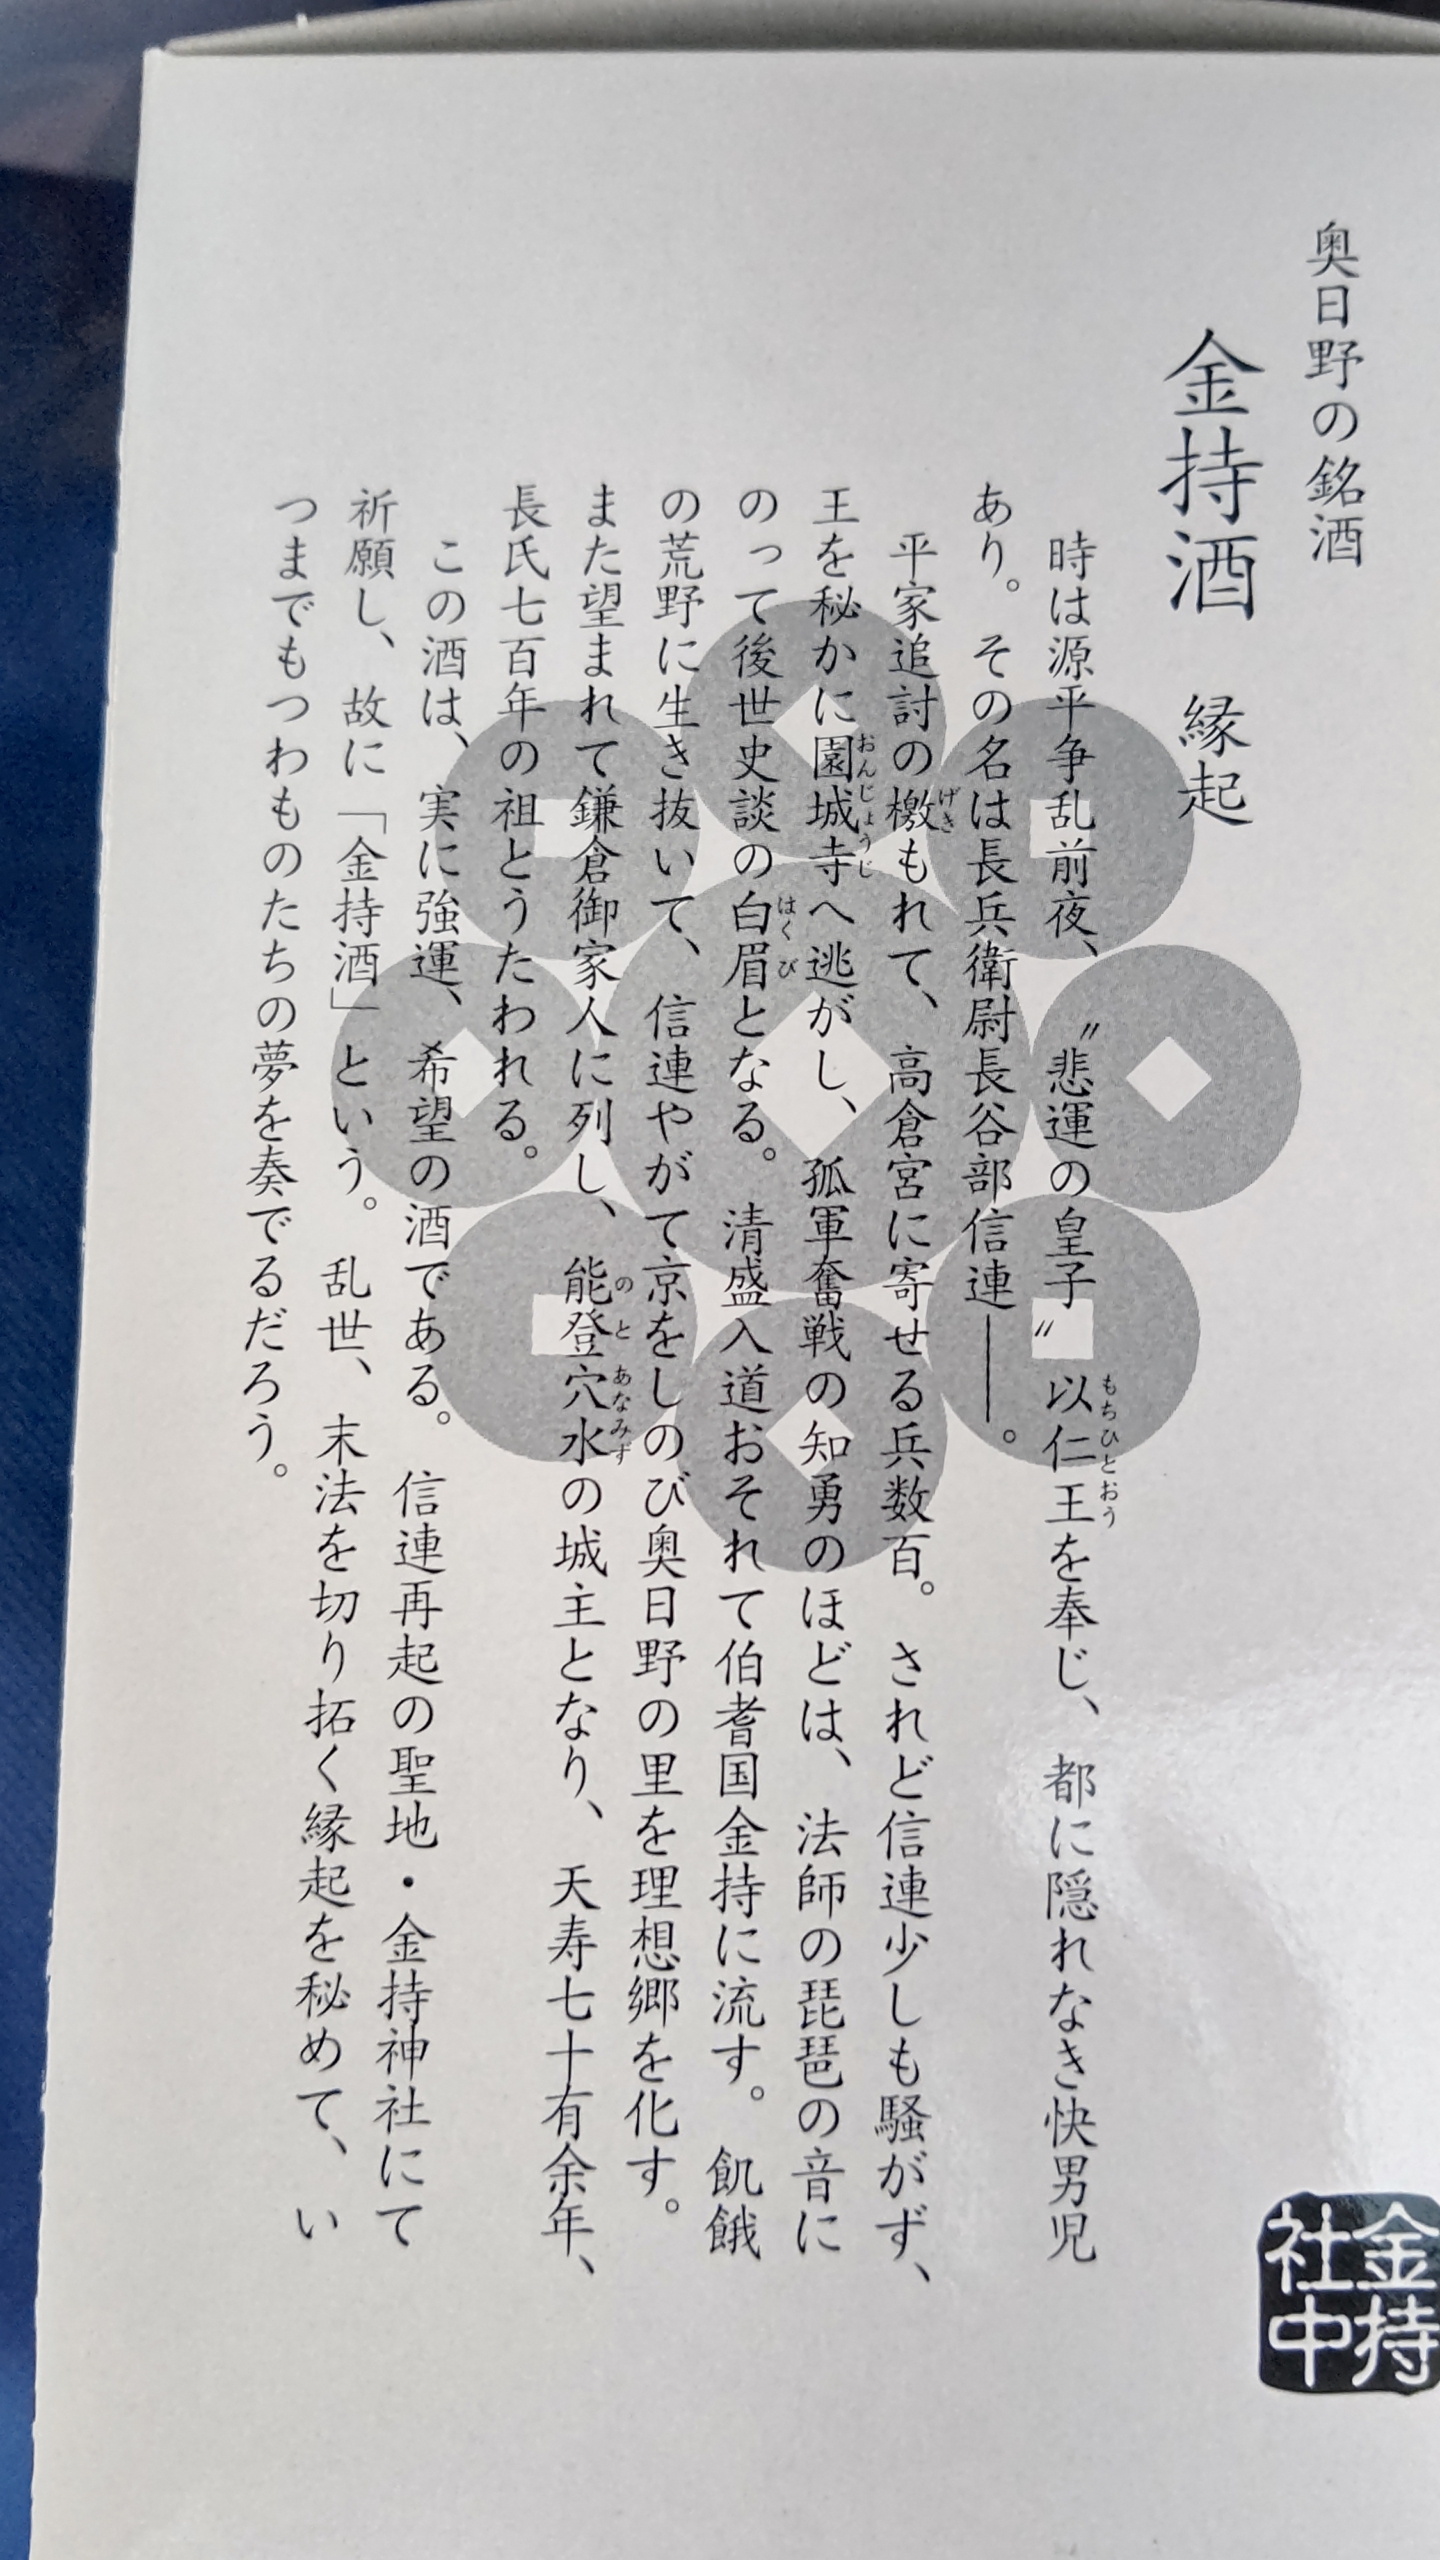 奥日野の銘酒
金持酒 縁起
時は源平争乱前夜、〝悲運の皇子〟以仁王を奉じ、都に隠れなき快男児
もちひとおう
あり。その名は長兵衛尉長谷部信連――。
平家追討の檄もれて、高倉宮に寄せる兵数百。されど信連少しも騒がず、
げき
王を秘かに園城寺へ逃がし、孤軍奮戦の知勇のほどは、法師の琵琶の音に
おんじょうじ
のって後世史談の白眉となる。清盛入道おそれて伯耆国金持に流す。飢餓
はくび
の荒野に生き抜いて、信連やがて京をしのび奥日野の里を理想郷を化す。
また望まれて鎌倉御家人に列し、能登穴水の城主となり、天寿七十有余年、
のとあなみず
長氏七百年の祖とうたわれる。
この酒は、実に強運、希望の酒である。信連再起の聖地・金持神社にて
祈願し、故に「金持酒」という。乱世、末法を切り拓く縁起を秘めて、い
つまでもつわものたちの夢を奏でるだろう。
金持
社中